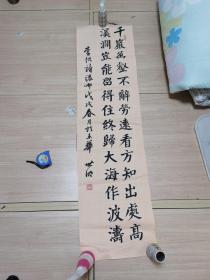 千巖萬壑不辭勞遠看方知出處高
溪澗豈能留得住終歸大海作波濤
李忱詩瀑布戊戌春月於華 世